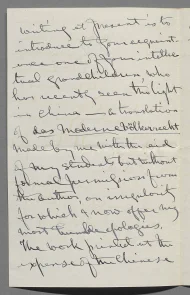 writing at present is to
introduce to your acquaint-
ance one of your intellec-
tual grandchildren, who
has recently seen the light
in China — a translation
of das Moderne Völkerrecht
made by me with the aid
of my students but without
formal permission from
the author, an irregularity
for which I now offer my
most humble apologies.
The work printed at the
expense of the Chinese